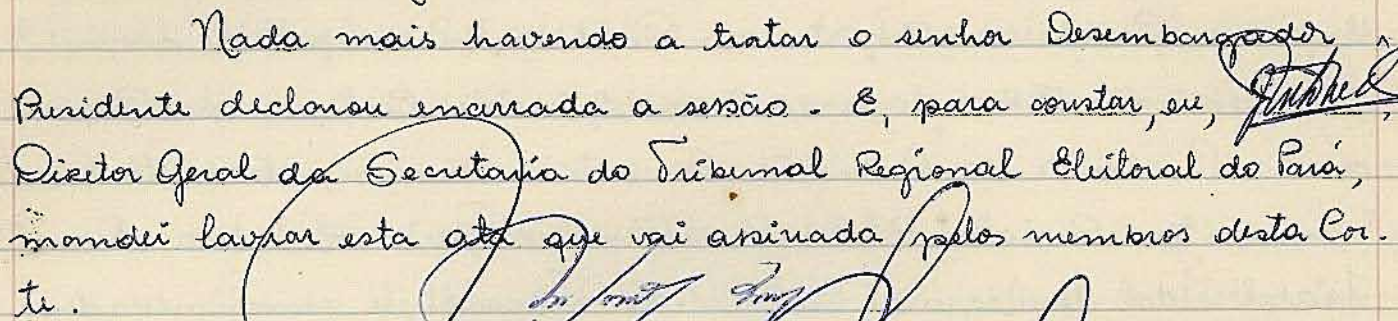 Nada mais havendo a tratar o senhor Desembargador
Presidente declarou encerrada a sessão. E, para constar, eu,
Diretor Geral da Secretaria do Tribunal Regional Eleitoral do Pará,
mandei lavrar esta ata que vai assinada pelos membros desta Cor-
te.